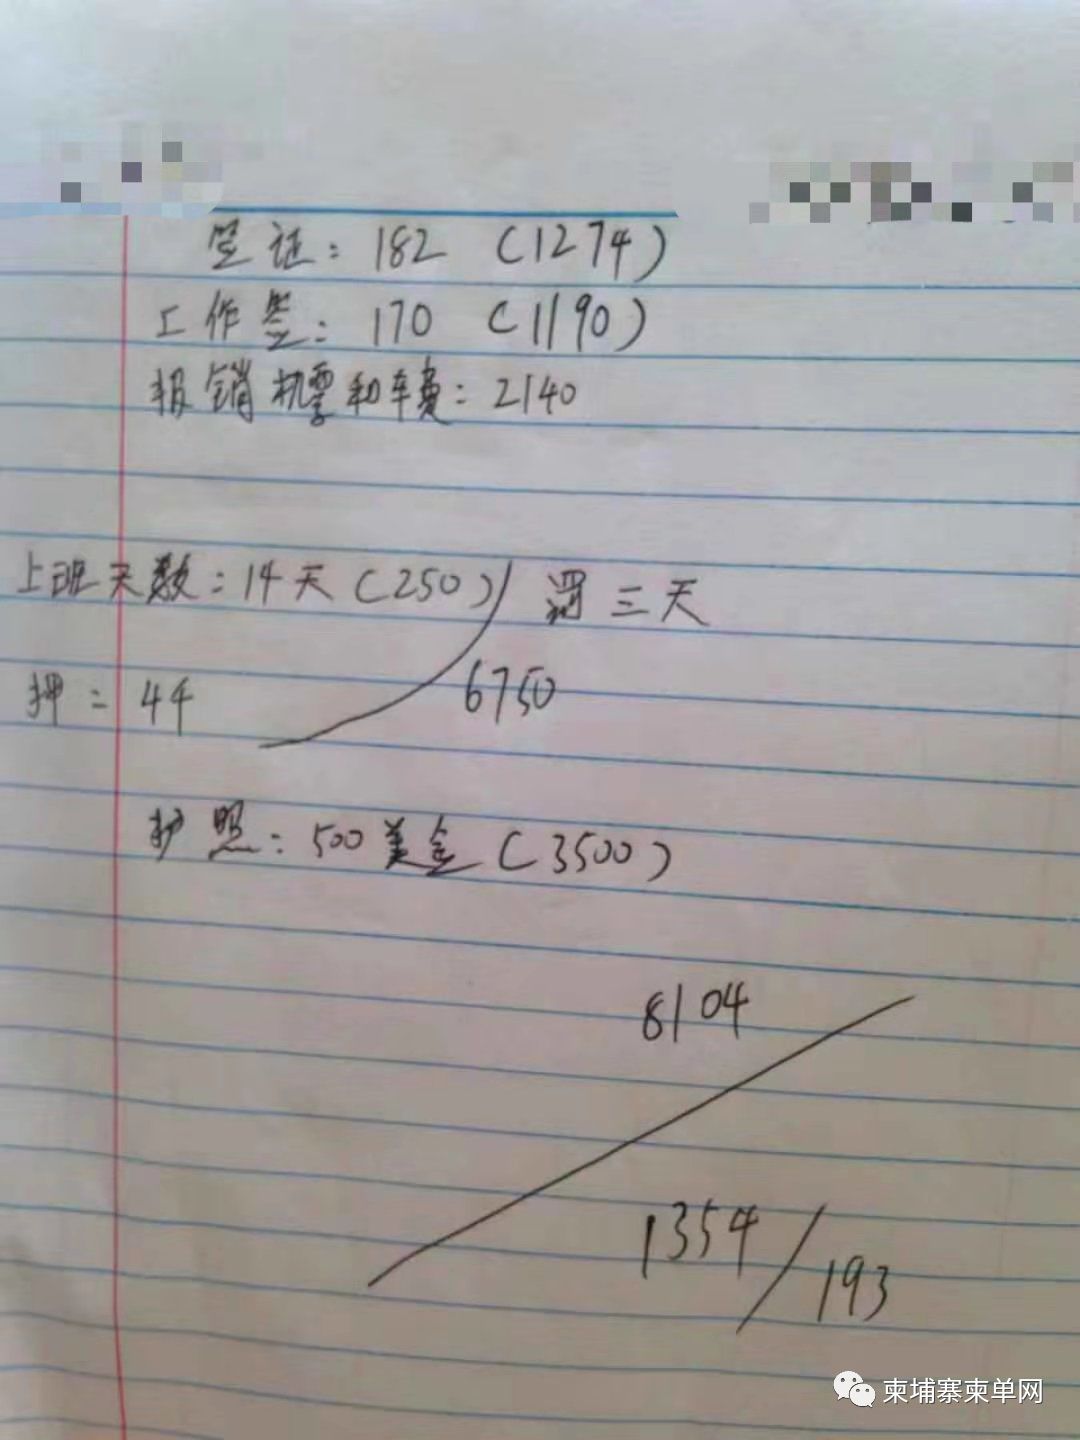 签证：182 （1274）
工作签：170 （1190）
报销机票和车费：2140
上班天数：14天（250） 罚三天
押：4千 6750
护照：500美金（3500）
8104
1354/193
柬埔寨柬单网